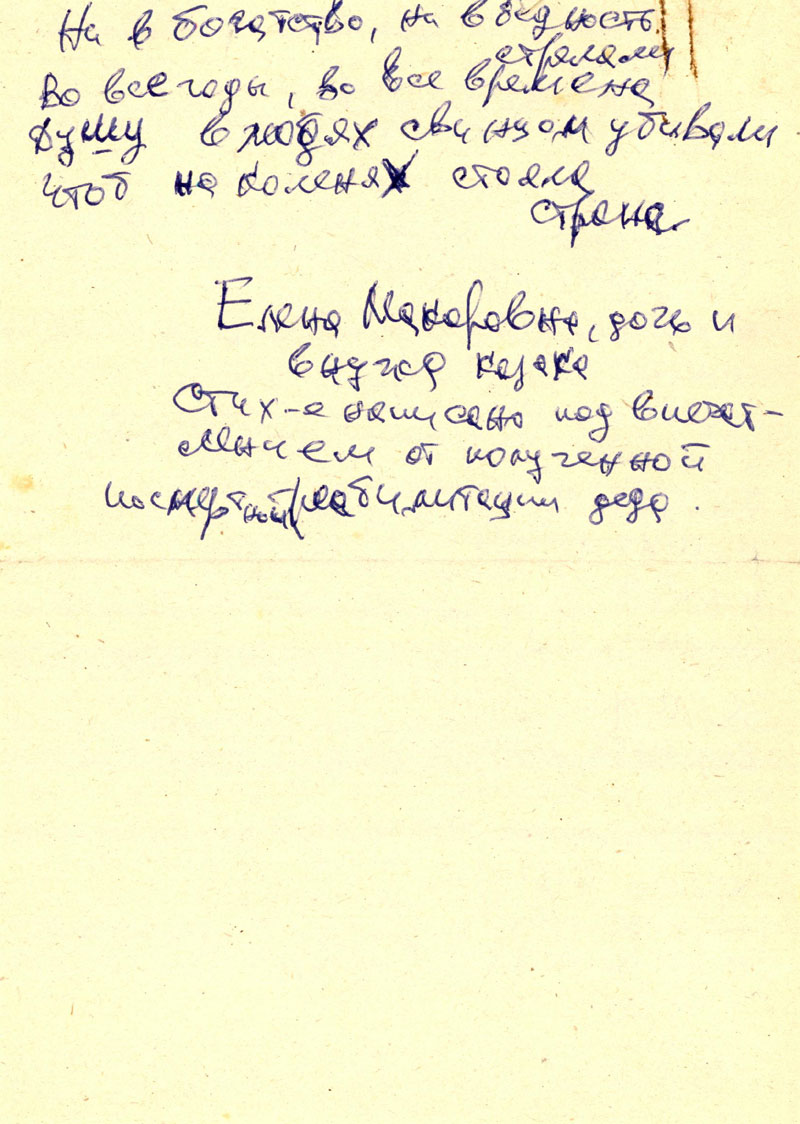 Не в богатство, не в бедность
стреляли
Во все годы, во все времена
Душу в людях свинцом убивали
Чтоб на коленях стояла
страна.
Елена Макаровна, дочь и
внучка казака
Стих-е написано под впечат-
лением от полученной
посмертной реабилитации деда.